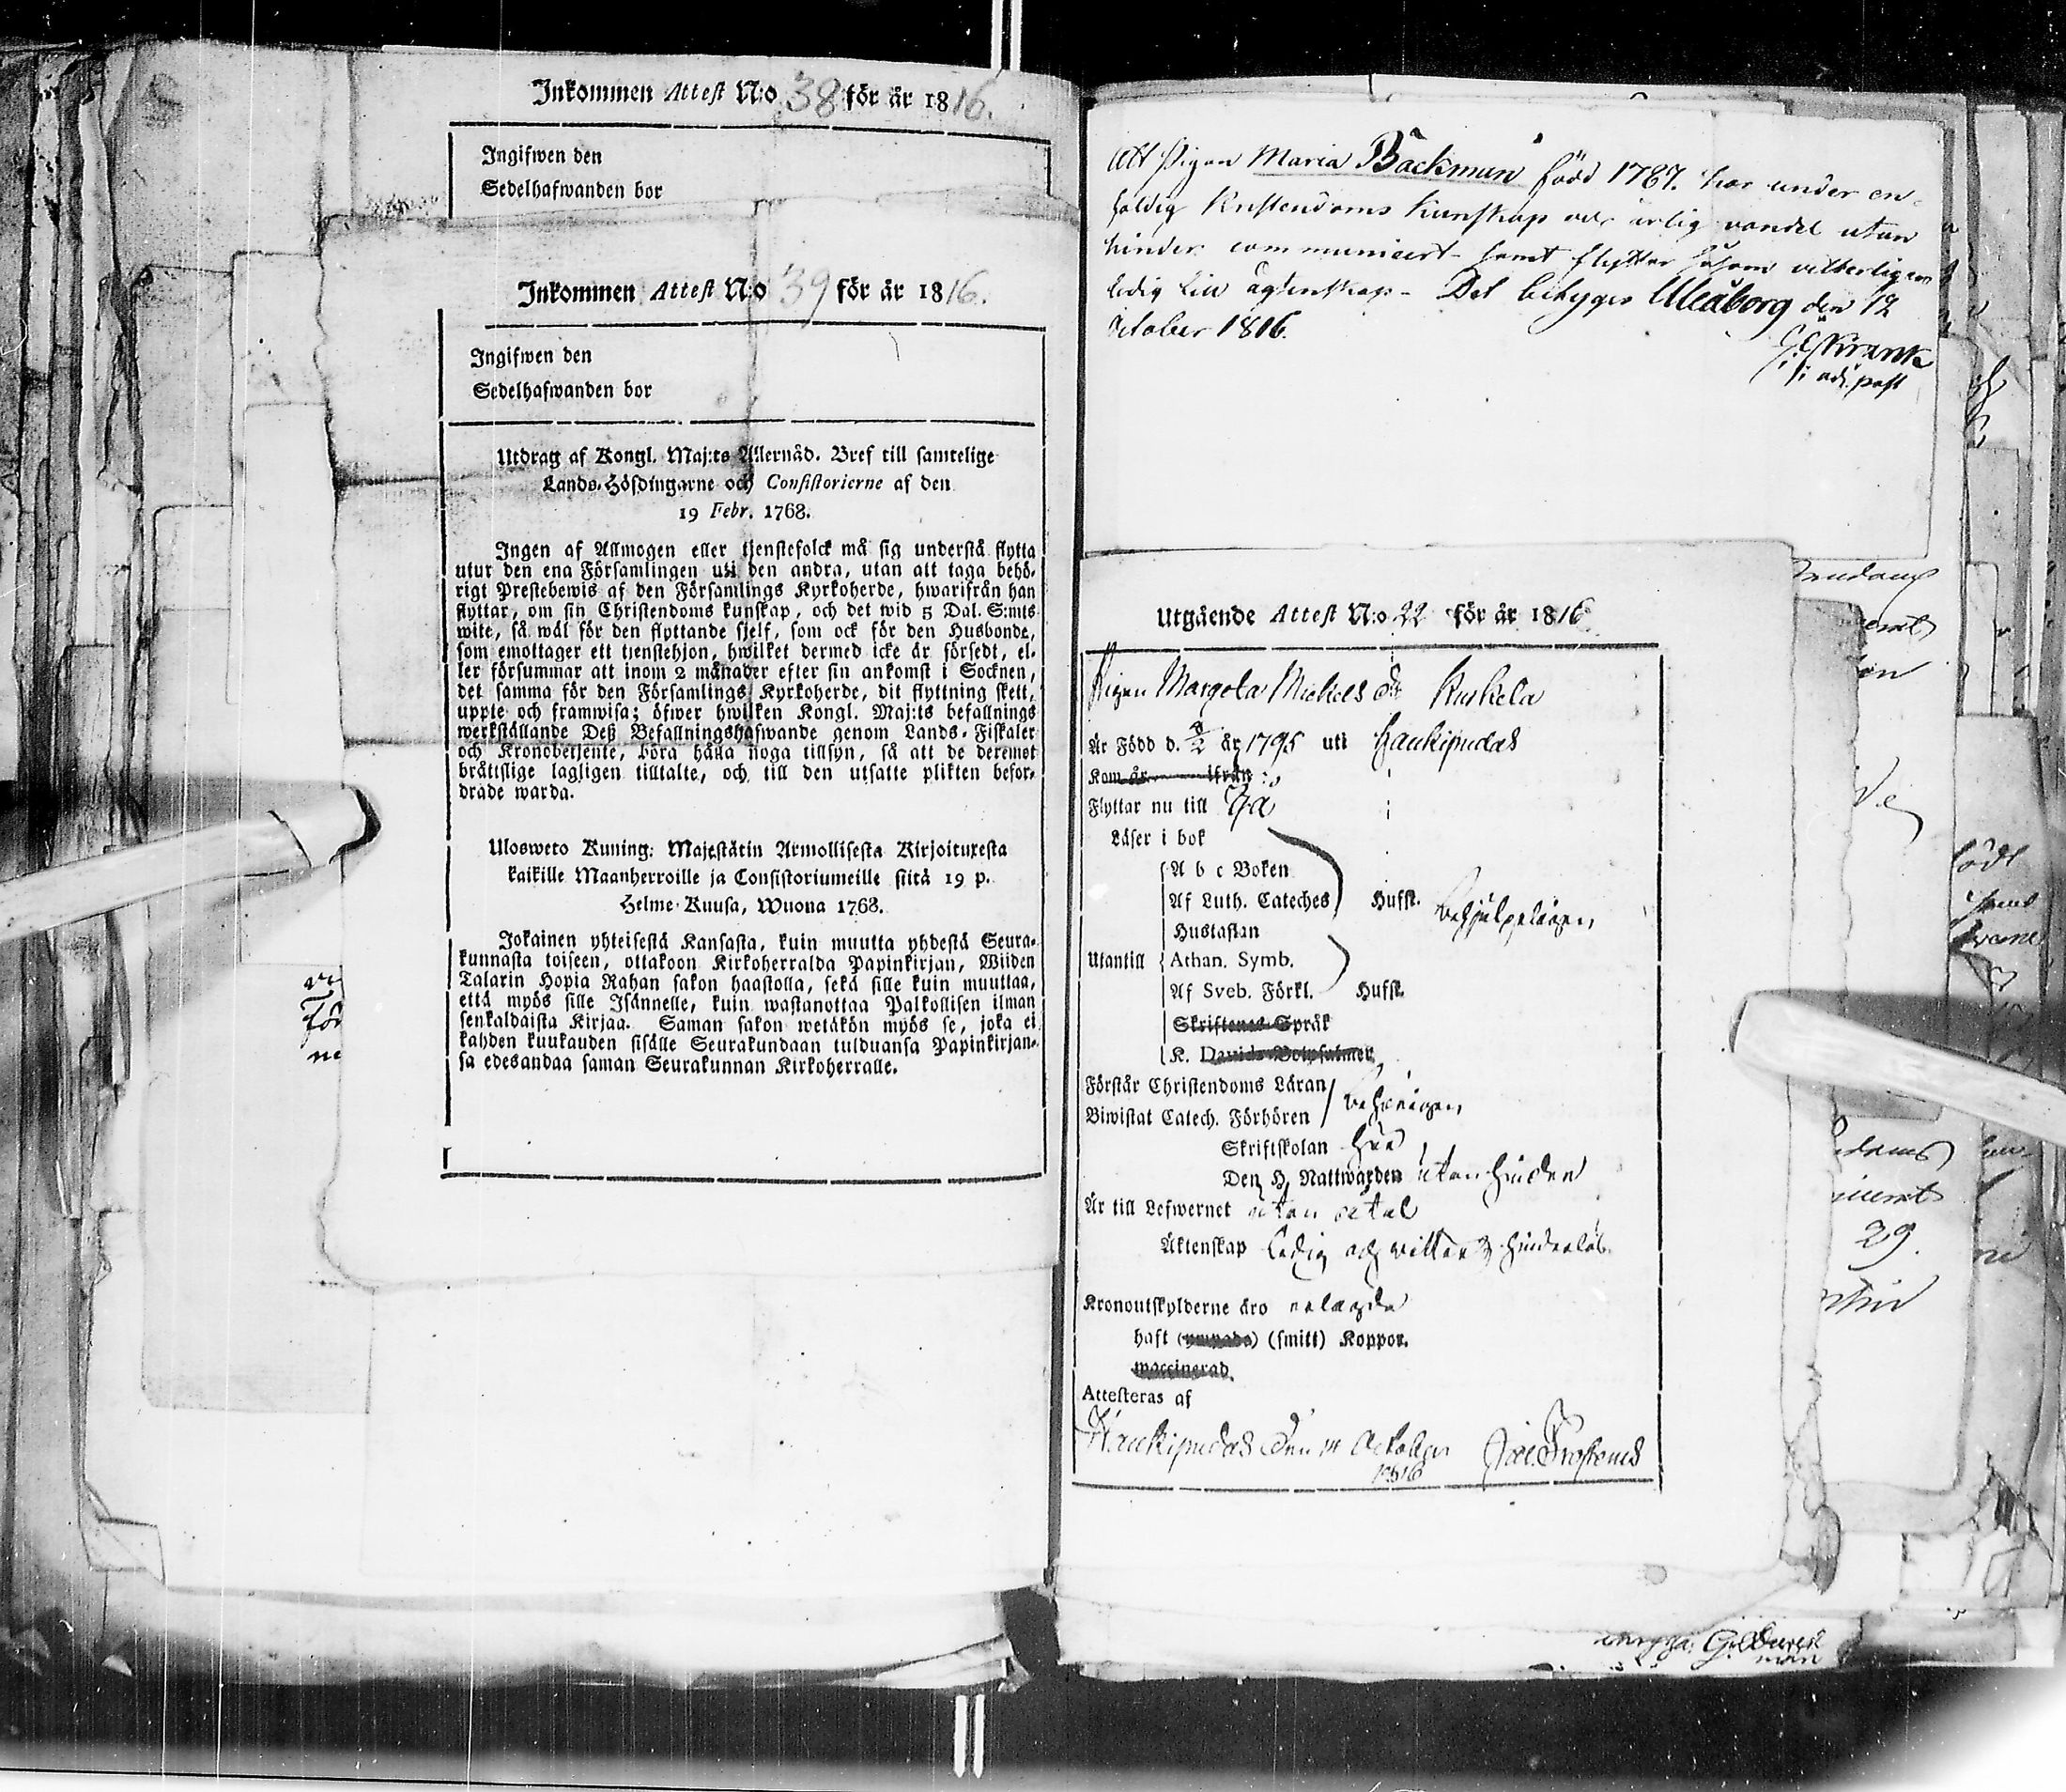 Inkommen Attest N:o 38 för år 1816.
Ingifwen den
Sedelhafwanden bor
Inkommen Attest N:o 39 för år 1816.
Ingifwen den
Sedelhafwanden bor
Utdrag af Kongl. Maj:ts Allernåd. Bref till samtelige
Lands-Höfdingarne och Consistorierne af den
19 Febr. 1768.
Ingen af Allmogen eller tjenstefolck må sig understå flytta
utur den ena Församlingen uti den andra, utan att taga behö-
rigt Prestebewis af den Församlings Kyrkoherde, hwarifrån han
flyttar, om sin Christendoms kunskap, och det wid 5 Dal. S:mts
wite, så wäl för den flyttande sjelf, som ock för den Husbonde,
som emottager ett tjenstehjon, hwilket dermed icke är försedt, el-
ler försummar att inom 2 månader efter sin ankomst i Socknen,
det samma för den Församlings Kyrkoherde, dit flyttning skett,
uppte och framwisa; öfwer hwilken Kongl. Maj:ts befallnings
werkställande Deß Befallningshafwande genom Lands-Fiskaler
och Kronobetjente, böra hålla noga tillsyn, så att de deremot
bråtislige lagligen tilltalte, och till den utsatte plikten befor-
drade warda.
Ulosweto Kuning: Majestätin Armollisesta Kirjoituxesta
kaikille Maanherroille ja Consistoriumeille siitä 19 p.
Helme-Kuusa, Wuona 1768.
Jokainen yhteisestä Kansasta, kuin muutta yhdestä Seura-
kunnasta toiseen, ottakoon Kirkoherralda Papinkirjan, Wiiden
Talarin Hopia Rahan sakon haastolla, sekä sille kuin muuttaa,
että myös sille Isännelle, kuin wastanottaa Palkollisen ilman
senkaldaista Kirjaa. Saman sakon wetäkön myös se, joka ei
kahden kuukauden sisälle Seurakundaan tulduansa Papinkirjan-
sa edesandaa saman Seurakunnan Kirkoherralle.
Att Pigan Maria Backman född 1787. har under en-
faldig Kristendoms Kunskap och ärlig vandel utan
hinder communicert samt flyttar såsom vitterligen
ledig till ägtenskap - Det betygas Uleåborg den 12
October 1816.
Utgående Attest N:o 22 för år 1816
Pigan Margeta Michels dr Kuskela
Är Född d. år 1795 uti Haukipudas
Kom år ifrån
Flyttar nu till
Läser i bok
A b c Boken
Af Luth. Cateches Hufst. behjelpeligen
Hustaflan
Utantill Athan. Symb.
Af Sveb. Förkl. Hufst.
Skriftenes Språk
K. Davids Botpsalmer
Förstår Christendoms Läran
Biwistat Catech. Förhören behörigen
Skriftskolan
Den H. Nattwarden utan hinder
Är till Lefwernet utan
Äktenskap ledig och hinderlös
Kronoutskylderne äro erlagda
haft (smitt) Koppor.
waccinerad.
Attesteras af
Haukipudas den October
1816
29.